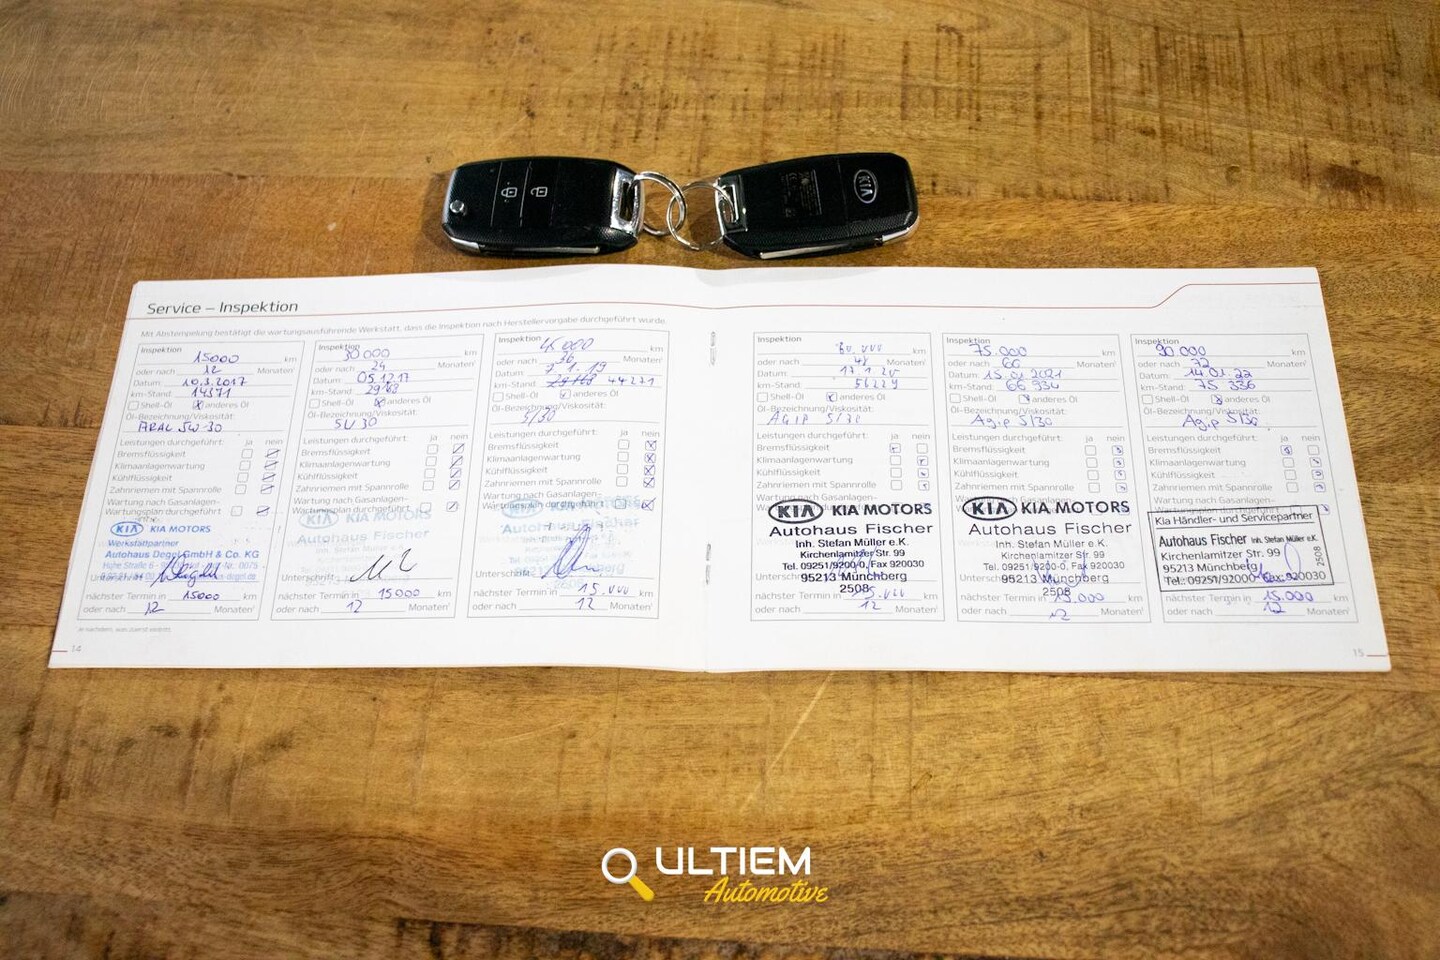 KIA
Service – Inspektion
Mit Abstempelung bestätigt die wartungsausführende Werkstatt, dass die Inspektion nach Herstellervorgabe durchgeführt wurde.
Inspektion
15000 km
oder nach 12 Monaten¹
Datum: 10.3.2017
km-Stand: 14371
Shell-Öl anderes Öl
Öl-Bezeichnung/Viskosität:
ARAL 5W30
Leistungen durchgeführt: ja nein
Bremsflüssigkeit
Klimaanlagenwartung
Kühlflüssigkeit
Zahnriemen mit Spannrolle
Wartung nach Gasanlagen-
Wartungsplan durchgeführt
KIA KIA MOTORS
Werkstattpartner
Autohaus Degel GmbH & Co. KG
nächster Termin in 15000 km
oder nach 12 Monaten¹
Inspektion
30.000 km
oder nach 24 Monaten¹
Datum: 05.12.17
km-Stand:
Shell-Öl anderes Öl
Öl-Bezeichnung/Viskosität:
Leistungen durchgeführt: ja nein
Bremsflüssigkeit
Klimaanlagenwartung
Kühlflüssigkeit
Zahnriemen mit Spannrolle
Wartung nach Gasanlagen-
KIA KIA MOTORS
Unterschrift
nächster Termin in 15000 km
oder nach 12 Monaten¹
Inspektion
45.000 km
oder nach 36 Monaten¹
Datum:
km-Stand: 44271
Shell-Öl anderes Öl
Öl-Bezeichnung/Viskosität:
5/30
Leistungen durchgeführt: ja nein
Bremsflüssigkeit
Klimaanlagenwartung
Kühlflüssigkeit
Zahnriemen mit Spannrolle
Wartung nach Gasanlagen-
Autohaus Fischer
Unterschrift
nächster Termin in 15.000 km
oder nach 12 Monaten¹
14
Inspektion
60.000 km
oder nach 48 Monaten¹
Datum: 17.1.20
km-Stand: 56229
Shell-Öl anderes Öl
Öl-Bezeichnung/Viskosität:
AGIP 5/30
Leistungen durchgeführt: ja nein
Bremsflüssigkeit
Klimaanlagenwartung
Kühlflüssigkeit
Zahnriemen mit Spannrolle
Wartung nach Gasanlagen-
KIA KIA MOTORS
Autohaus Fischer
Inh. Stefan Müller e.K.
Kirchenlamitzer Str. 99
Tel. 09251/9200-0, Fax 920030
95213 Münchberg
2508
nächster Termin in 15.000 km
oder nach 12 Monaten¹
Inspektion
75.000 km
oder nach 60 Monaten¹
Datum: 15.01.2021
km-Stand: 66 934
Shell-Öl anderes Öl
Öl-Bezeichnung/Viskosität:
Agip 5/30
Leistungen durchgeführt: ja nein
Bremsflüssigkeit
Klimaanlagenwartung
Kühlflüssigkeit
Zahnriemen mit Spannrolle
Wartung nach Gasanlagen-
KIA KIA MOTORS
Autohaus Fischer
Inh. Stefan Müller e.K.
Kirchenlamitzer Str. 99
Tel. 09251/9200-0, Fax 920030
95213 Münchberg
2508
nächster Termin in 15.000 km
oder nach 12 Monaten¹
Inspektion
90.000 km
oder nach 72 Monaten¹
Datum: 14.01.22
km-Stand: 75 336
Shell-Öl anderes Öl
Öl-Bezeichnung/Viskosität:
Agip 5/30
Leistungen durchgeführt: ja nein
Bremsflüssigkeit
Klimaanlagenwartung
Kühlflüssigkeit
Zahnriemen mit Spannrolle
Wartung nach Gasanlagen-
Kia Händler- und Servicepartner
Autohaus Fischer Inh. Stefan Müller e.K.
Kirchenlamitzer Str. 99
95213 Münchberg
2508
nächster Termin in 15.000 km
oder nach 12 Monaten¹
15
ULTIEM
Automotive